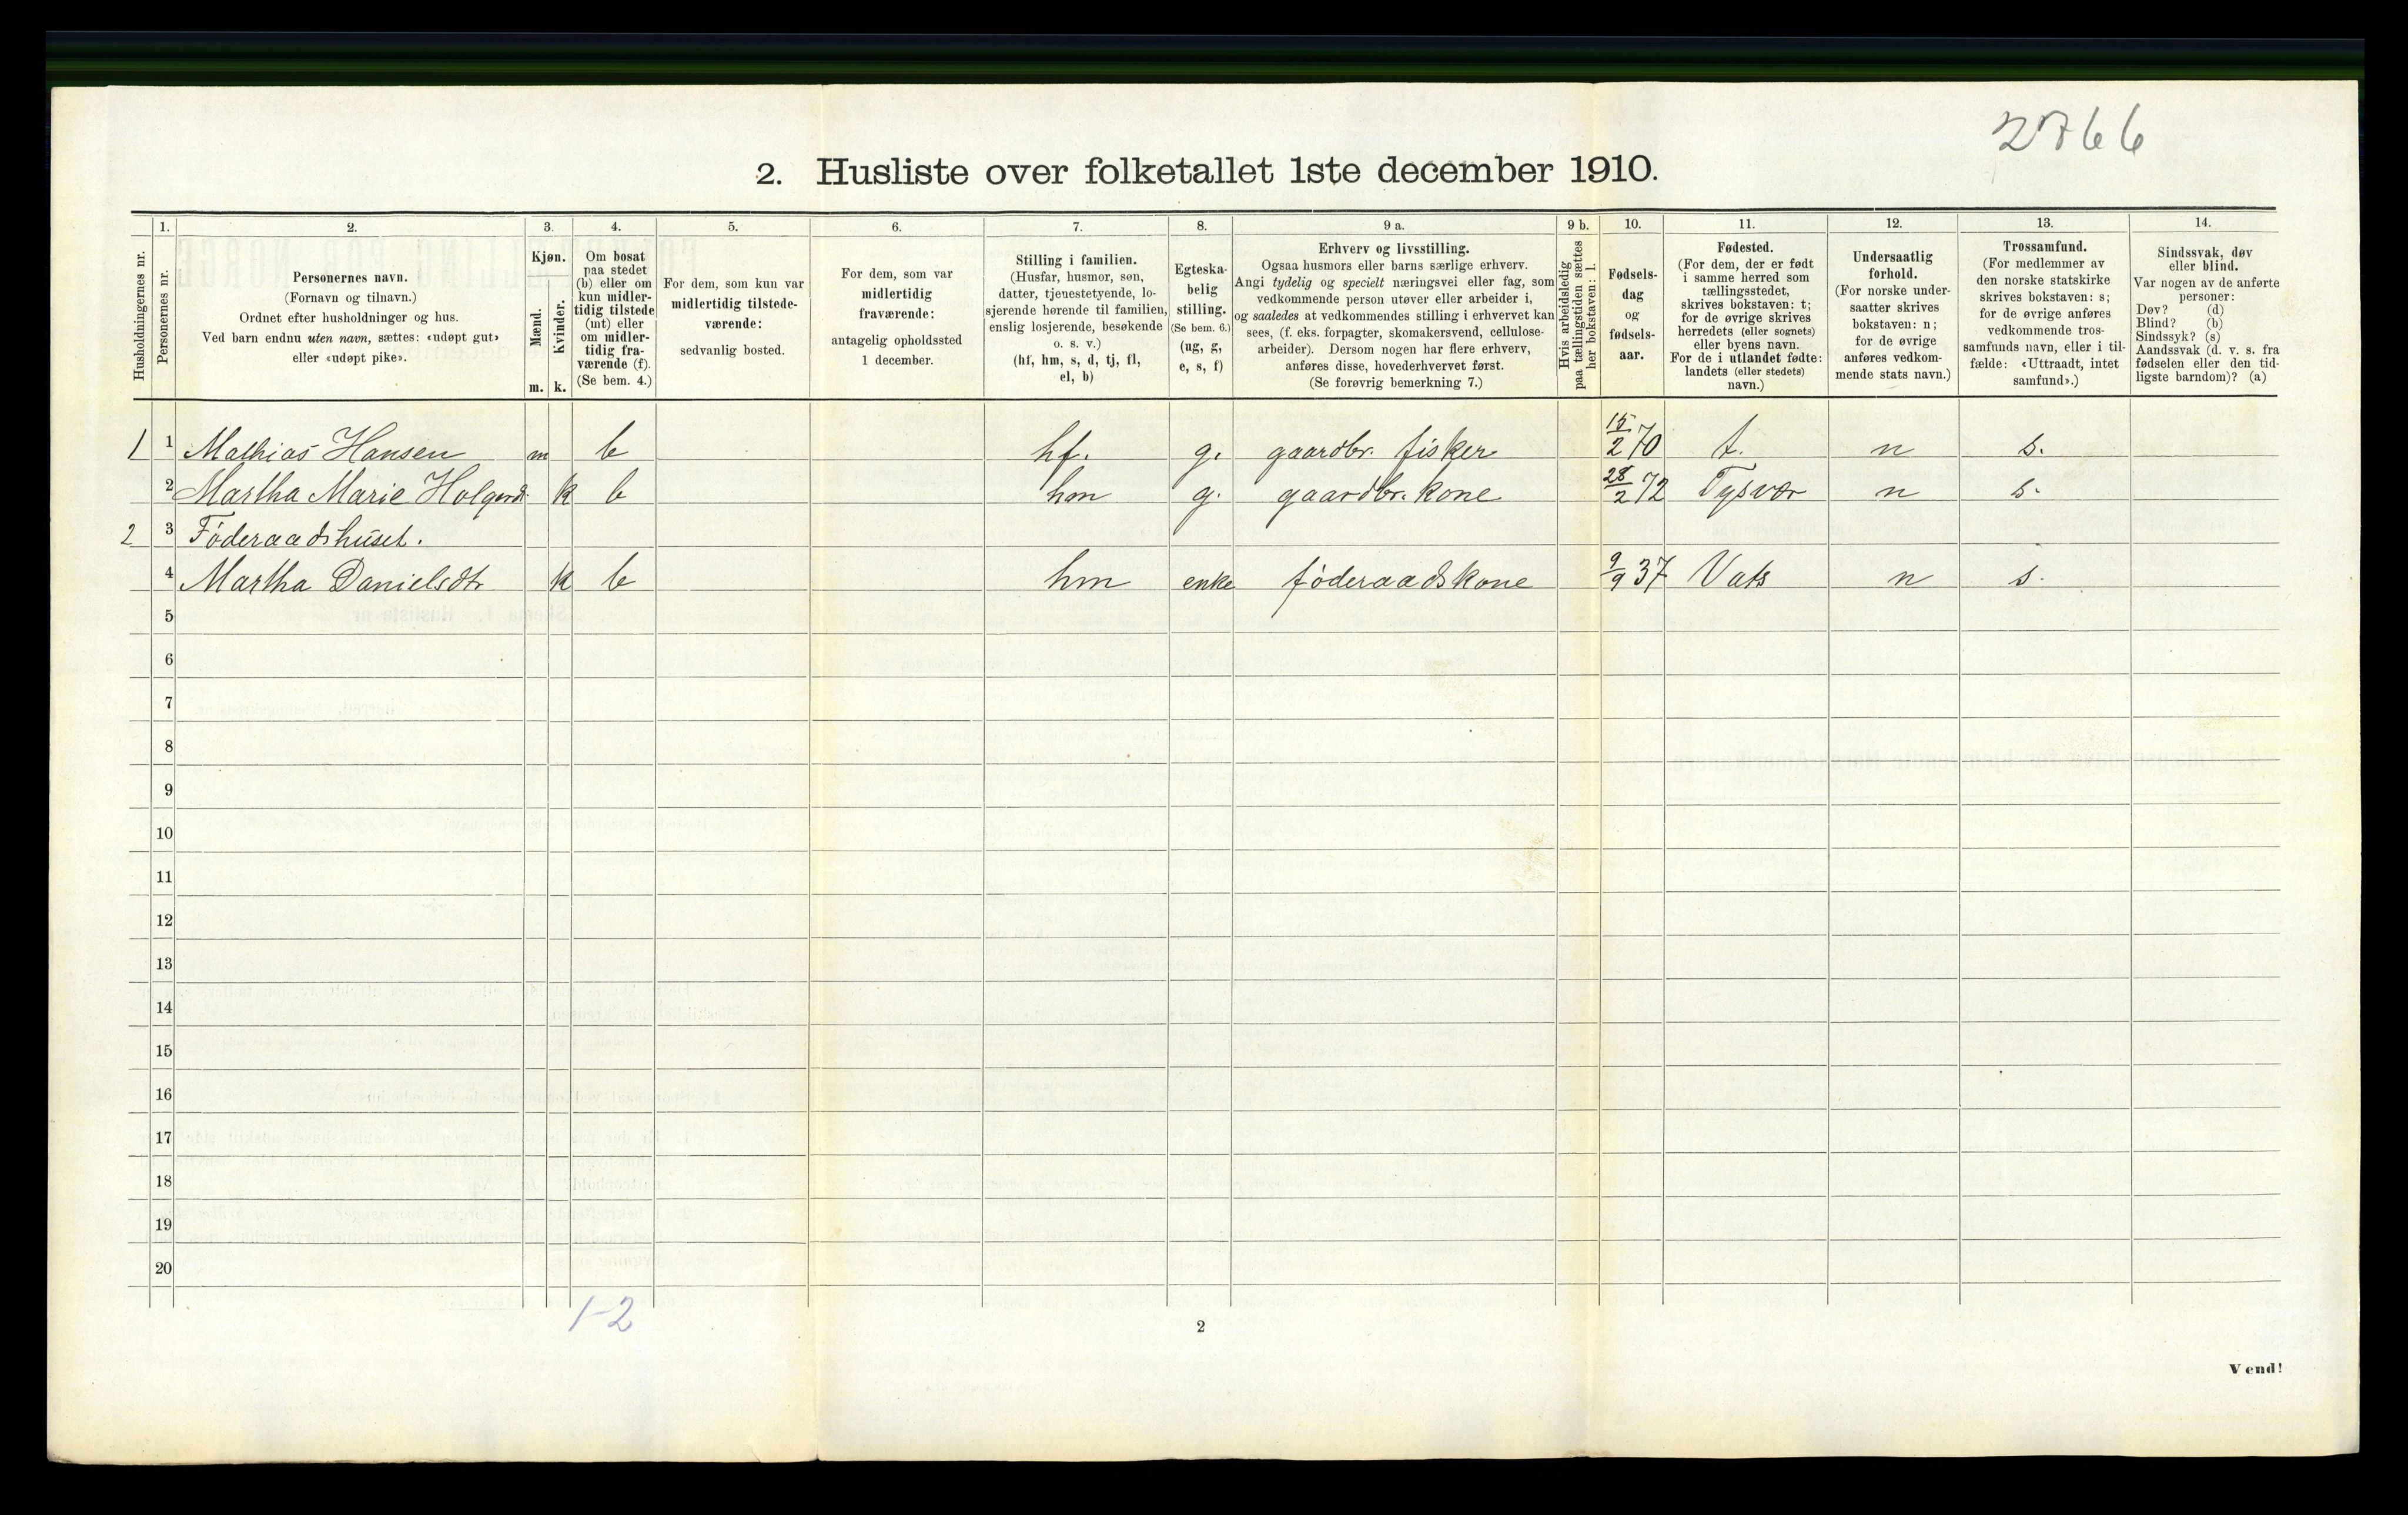 2766
2. Husliste over folketallet 1ste december 1910.
1. 2. 3. 4. 5. 6. 7. 8. 9 a. 9 b. 10. 11. 12. 13. 14.
Husholdningernes nr.
Personernes nr.
Personernes navn.
(Fornavn og tilnavn.)
Ordnet efter husholdninger og hus.
Ved barn endnu uten navn, sættes: «udøpt gut»
eller «udøpt pike».
Kjøn.
Mænd.
Kvinder.
m. k.
Om bosat
paa stedet
(b) eller om
kun midler-
tidig tilstede
(mt) eller
om midler-
tidig fra-
værende (f).
(Se bem. 4.)
For dem, som kun var
midlertidig tilstede-
værende:
sedvanlig bosted.
For dem, som var
midlertidig
fraværende:
antagelig opholdssted
1 december.
Stilling i familien.
(Husfar, husmor, søn,
datter, tjenestetyende, lo-
sjerende hørende til familien,
enslig losjerende, besøkende
o. s. v.)
(hf, hm, s, d, tj, fl,
el, b)
Egteska-
belig
stilling.
(Se bem. 6.)
(ug, g,
e, s, f)
Erhverv og livsstilling.
Ogsaa husmors eller barns særlige erhverv.
Angi tydelig og specielt næringsvei eller fag, som
vedkommende person utøver eller arbeider i,
og saaledes at vedkommendes stilling i erhvervet kan
sees, (f. eks. forpagter, skomakersvend, cellulose-
arbeider). Dersom nogen har flere erhverv,
anføres disse, hovederhvervet først.
(Se forøvrig bemerkning 7.)
Hvis arbeidsledig
paa tællingstiden sættes
her bokstaven: l.
Fødsels-
dag
og
fødsels-
aar.
Fødested.
(For dem, der er født
i samme herred som
tællingsstedet,
skrives bokstaven: t;
for de øvrige skrives
herredets (eller sognets)
eller byens navn.
For de i utlandet fødte:
landets (eller stedets)
navn.)
Undersaatlig
forhold.
(For norske under-
saatter skrives
bokstaven: n;
for de øvrige
anføres vedkom-
mende stats navn.)
Trossamfund.
(For medlemmer av
den norske statskirke
skrives bokstaven: s;
for de øvrige anføres
vedkommende tros-
samfunds navn, eller i til-
fælde: «Uttraadt, intet
samfund».)
Sindssvak, døv
eller blind.
Var nogen av de anførte
personer:
Døv? (d)
Blind? (b)
Sindssyk? (s)
Aandssvak (d. v. s. fra
fødselen eller den tid-
ligste barndom)? (a)
1 1 Mathias Hansen m b hf. g. gaardbr. fisker 15/2 70 t. n s.
2 Martha Marie Holgersd. k b hm g. gaardbr. kone 28/2 72 Tysvær n s.
2 3 Føderaadshuset.
4 Martha Danielsdtr k b hm enke føderaadskone 9/9 37 Vats n s.
5
6
7
8
9
10
11
12
13
14
15
16
17
18
19
20
1-2
2
Vend!